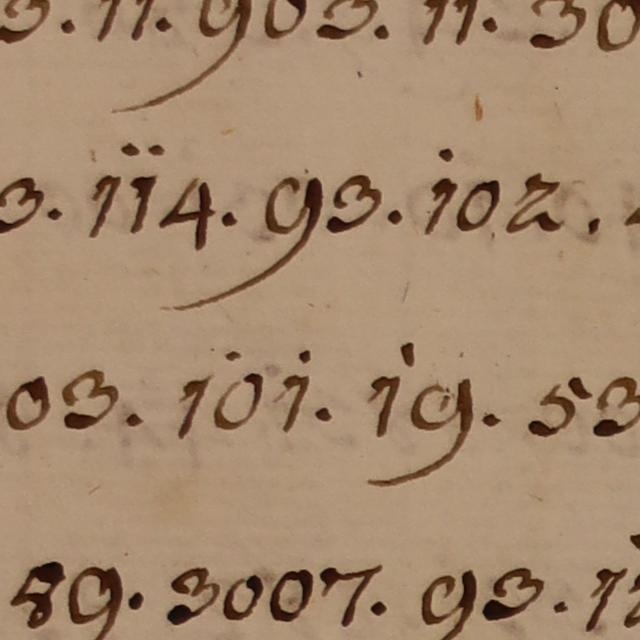 3.11.903.11.30
3.114.93.102.
03.101.19.53
89.3007.93.11